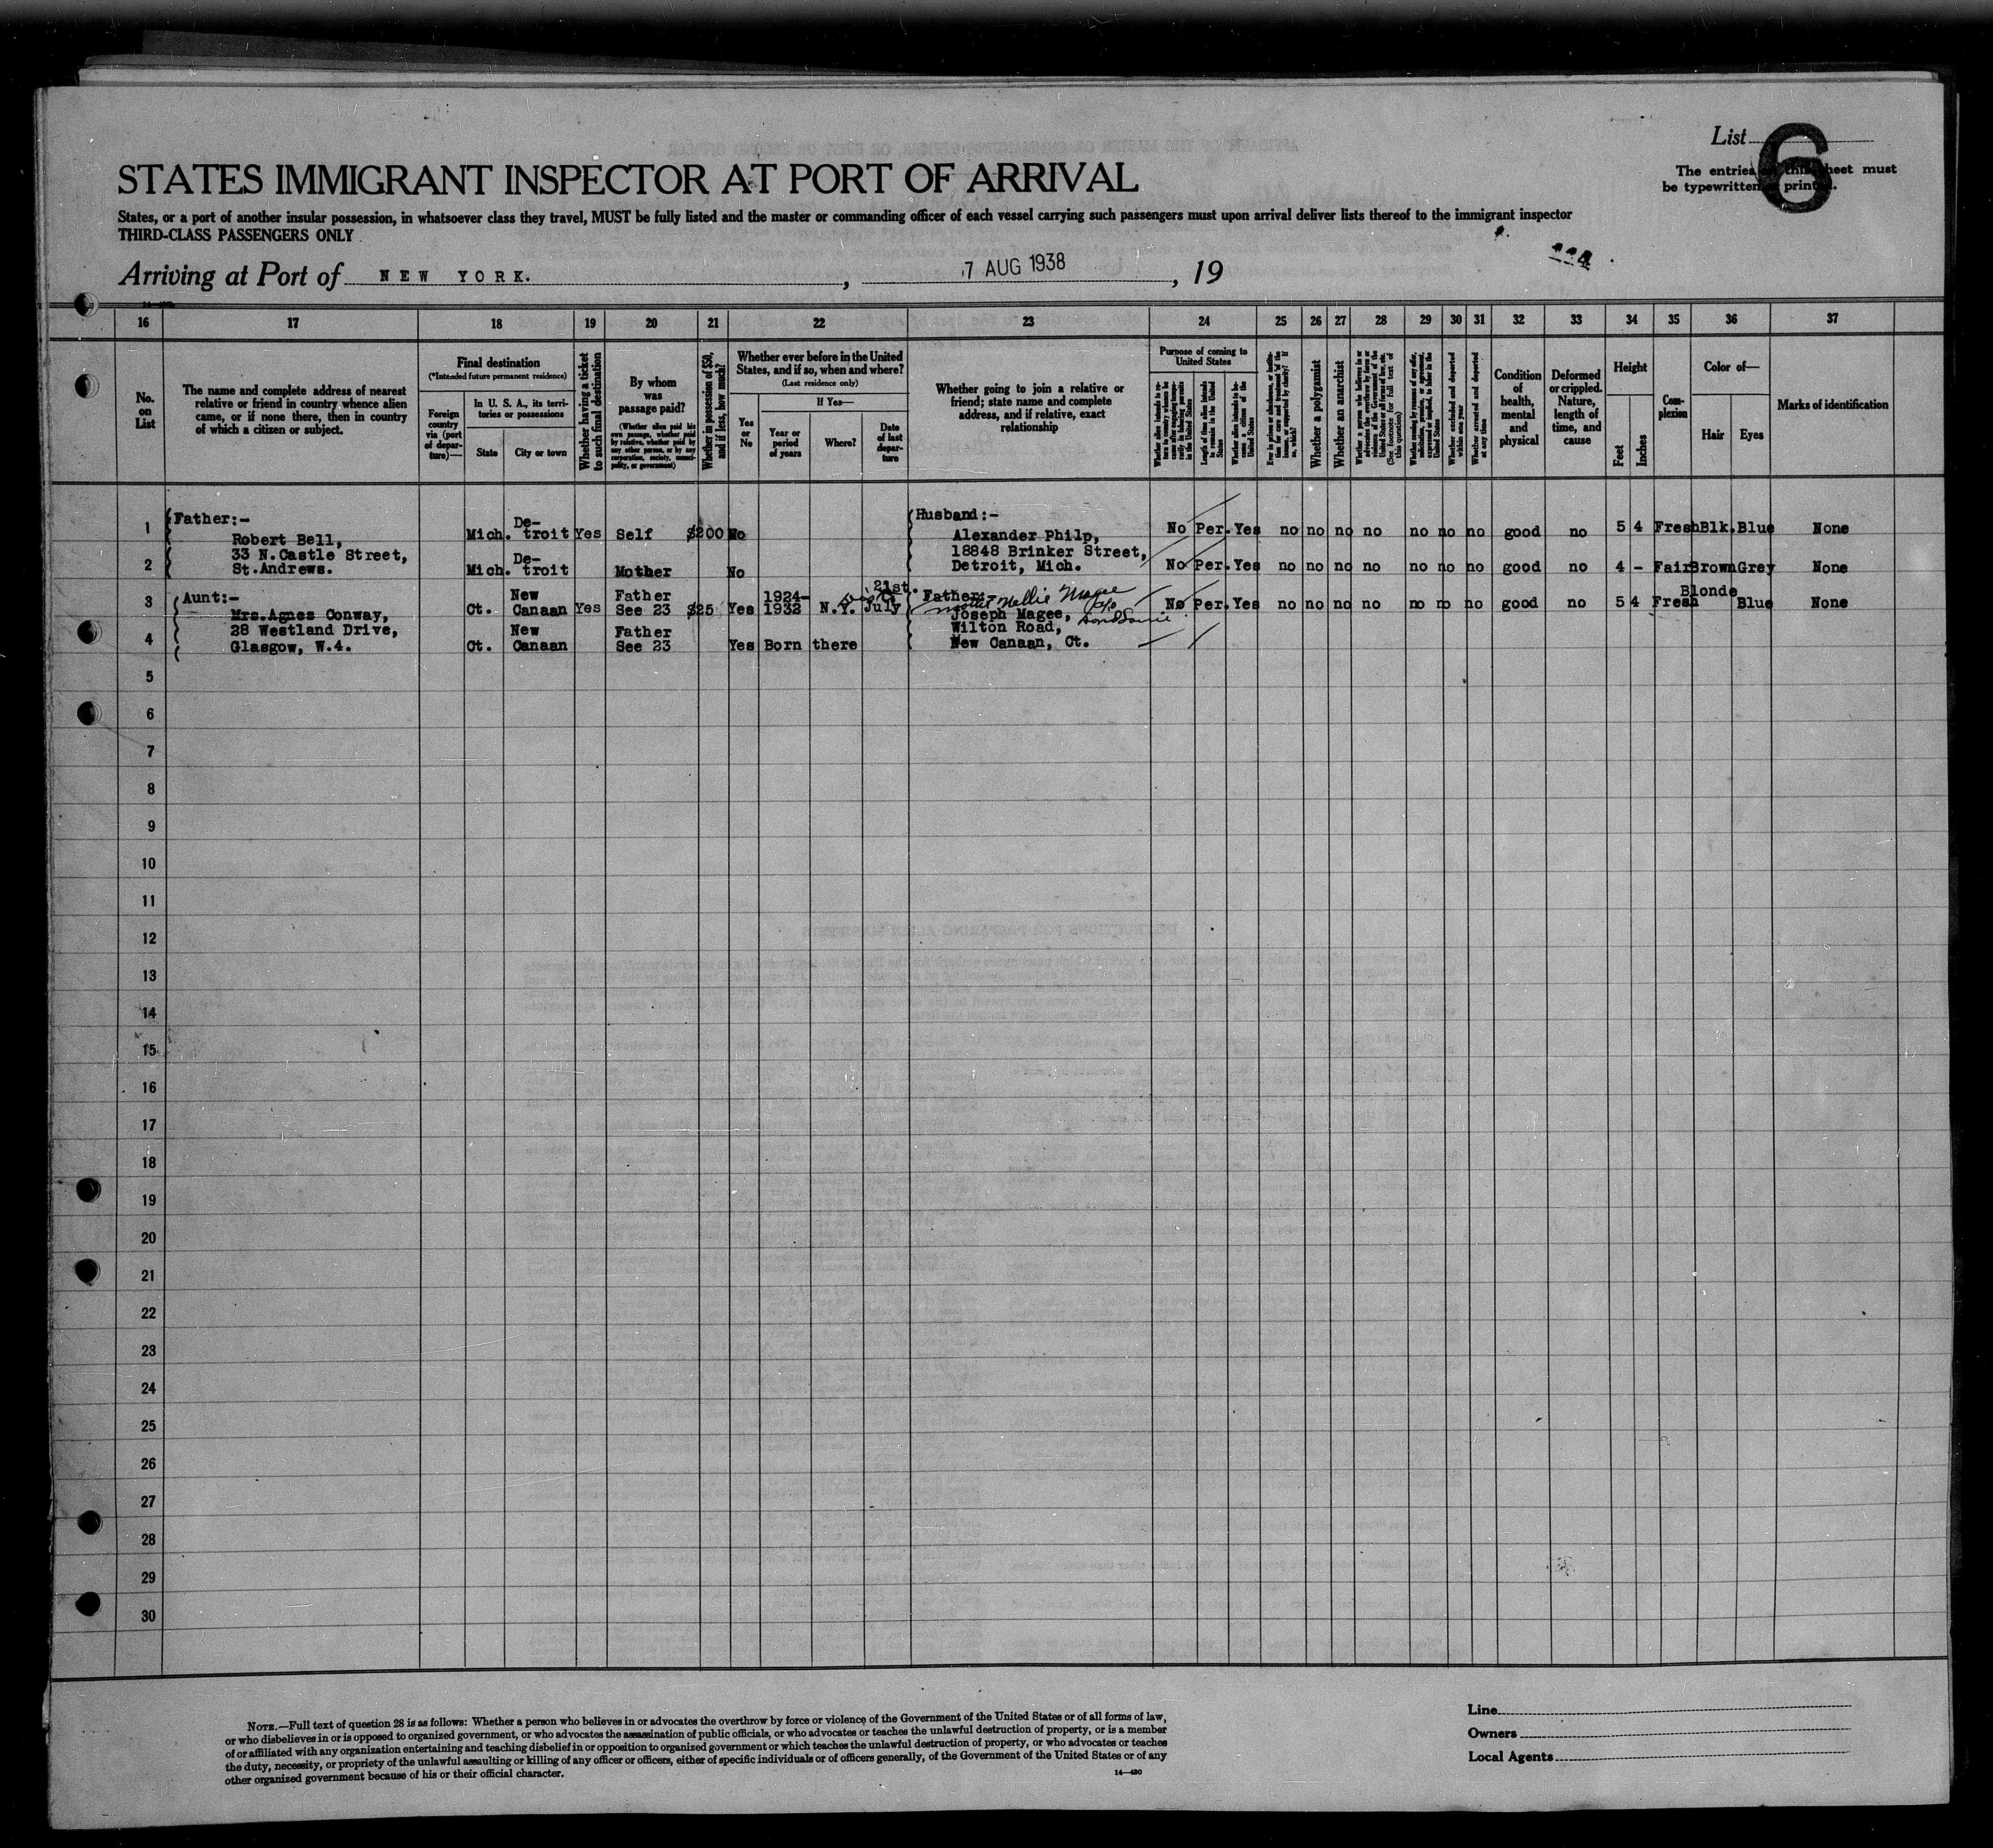 List 6
The entries on this sheet must
be typewritten or printed.
STATES IMMIGRANT INSPECTOR AT PORT OF ARRIVAL
States, or a port of another insular possession, in whatsoever class they travel, MUST be fully listed and the master or commanding officer of each vessel carrying such passengers must upon arrival deliver lists thereof to the immigrant inspector
THIRD-CLASS PASSENGERS ONLY
Arriving at Port of NEW YORK. , 7 AUG 1938 , 19
16 17 18 19 20 21 22 23 24 25 26 27 28 29 30 31 32 33 34 35 36 37
No.
on
List
The name and complete address of nearest
relative or friend in country whence alien
came, or if none there, then in country
of which a citizen or subject.
Final destination
(*Intended future permanent residence)
Foreign
country
via (port
of depar-
ture)—
In U. S. A., its terri-
tories or possessions
State City or town
Whether having a ticket
to such final destination
By whom
was
passage paid?
(Whether alien paid his
own passage, whether paid
by relative, whether paid by
any other person, or by any
corporation, society, munici-
pality, or government)
Whether in possession of $50,
and if less, how much?
Whether ever before in the United
States, and if so, when and where?
(Last residence only)
Yes
or
No
If Yes—
Year or
period
of years
Where?
Date
of last
depar-
ture
Whether going to join a relative or
friend; state name and complete
address, and if relative, exact
relationship
Purpose of coming to
United States
Whether a polygamist
Whether an anarchist
Whether excluded and deported
within one year
Whether arrested and deported
at any time
Condition
of
health,
mental
and
physical
Deformed
or crippled.
Nature,
length of
time, and
cause
Height
Feet Inches
Com-
plexion
Color of—
Hair Eyes
Marks of identification
1 Father:-
Robert Bell, Mich. De-troit Yes Self $200 No Husband:- Alexander Philp, No Per. Yes no no no no no no no good no 5 4 Fresh Blk. Blue None
33 N.Castle Street, 18848 Brinker Street,
2 St.Andrews. Mich. De-troit Mother No Detroit, Mich. No Per. Yes no no no no no no no good no 4 - Fair Brown Grey None
3 Aunt:- Father 1924- 21st. Father: mother Nellie Magee
Mrs.Agnes Conway, Ct. New Canaan Yes See 23 $25 Yes 1932 N.Y. July Joseph Magee, No Per. Yes no no no no no no no good no 5 4 Fresh Blonde Blue None
28 Westland Drive, Wilton Road,
4 Glasgow, W.4. Ct. New Canaan Father See 23 Yes Born there New Canaan, Ct.
5
6
7
8
9
10
11
12
13
14
15
16
17
18
19
20
21
22
23
24
25
26
27
28
29
30
NOTE.—Full text of question 28 is as follows: Whether a person who believes in or advocates the overthrow by force or violence of the Government of the United States or of all forms of law,
or who disbelieves in or is opposed to organized government, or who advocates the assassination of public officials, or who advocates or teaches the unlawful destruction of property, or is a member
of or affiliated with any organization entertaining and teaching disbelief in or opposition to organized government or which teaches the unlawful destruction of property, or who advocates or teaches
the duty, necessity, or propriety of the unlawful assaulting or killing of any officer or officers, either of specific individuals or of officers generally, of the Government of the United States or of any
other organized government because of his or their official character.
14—430
Line
Owners
Local Agents